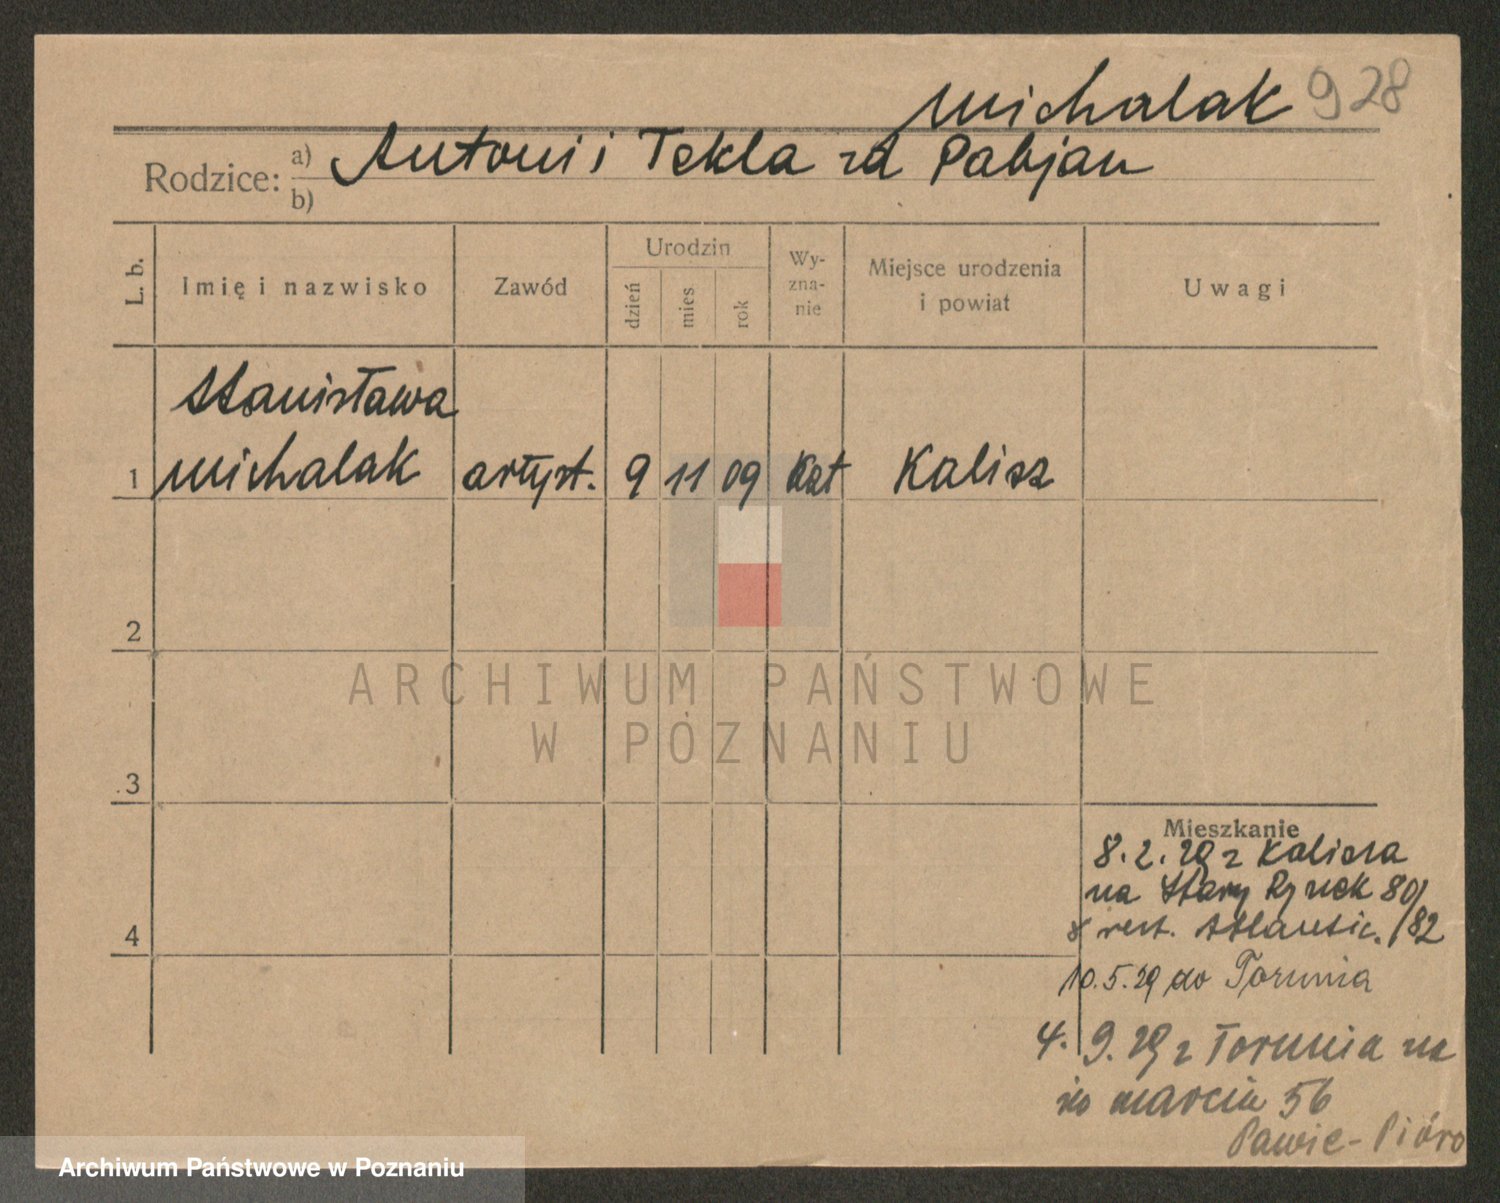 Michalak 928
Rodzice: a) Antoni i Tekla zd Pabjan
b)
L. b.
Imię i nazwisko
Zawód
Urodzin
dzień
mies
rok
Wy-
zna-
nie
Miejsce urodzenia
i powiat
Uwagi
Stanisława
1 Michalak artyst. 9 11 09 Kat Kalisz
2
3
4
ARCHIWUM PAŃSTWOWE
W POZNANIU
Mieszkanie
8.2.29 z Kalisza
na Stary Rynek 80/
rest. Atlantic. /82
10.5.29 do Torunia
4. 9.29 z Torunia na
Marcin 56
Pawie-Pióro
Archiwum Państwowe w Poznaniu